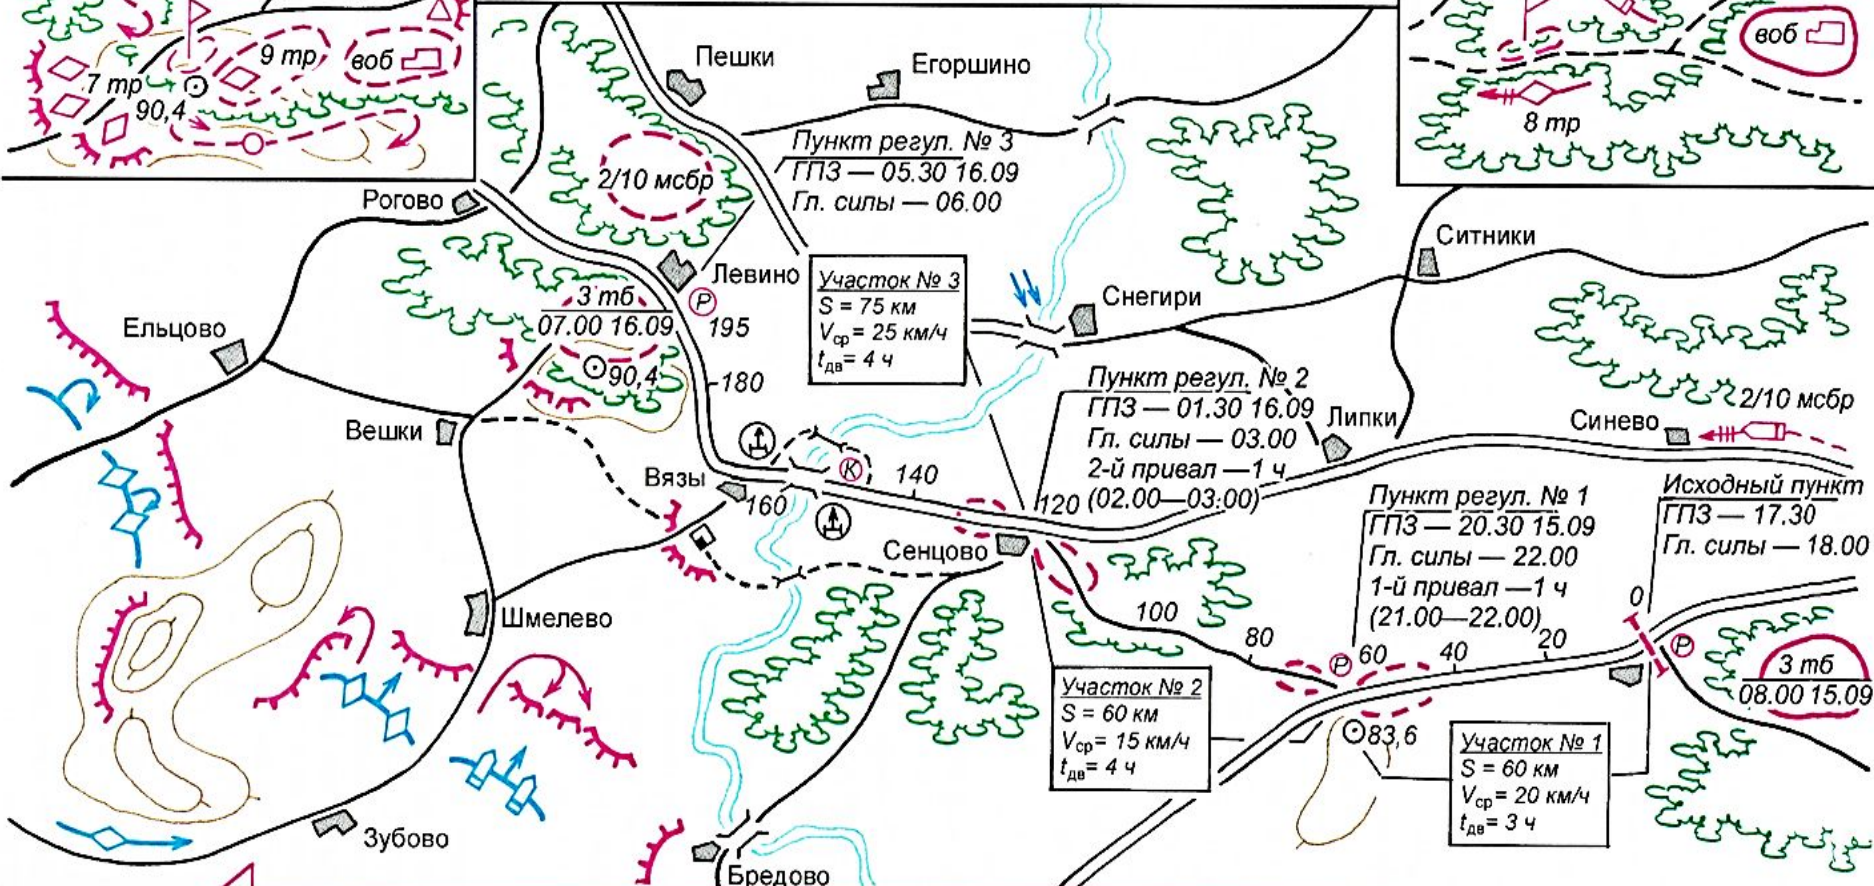 7 тр
9 тр
воб
90,4
воб
8 тр
Пешки
Егоршино
Пункт регул. № 3
ГПЗ — 05.30 16.09
Гл. силы — 06.00
2/10 мсбр
Рогово
Левино
Р
3 тб
07.00 16.09
195
90,4
180
Ельцово
Вешки
Участок № 3
S = 75 км
Vср= 25 км/ч
tдв= 4 ч
Снегири
Ситники
Пункт регул. № 2
ГПЗ — 01.30 16.09
Гл. силы — 03.00
2-й привал —1 ч
(02.00—03:00)
Липки
2/10 мсбр
Синево
Вязы
160
К
140
120
Сенцово
Пункт регул. № 1
ГПЗ — 20.30 15.09
Гл. силы — 22.00
1-й привал —1 ч
(21.00—22.00)
Исходный пункт
ГПЗ — 17.30
Гл. силы — 18.00
Шмелево
100
80
Р
60
40
20
0
Р
3 тб
08.00 15.09
Участок № 2
S = 60 км
Vср= 15 км/ч
tдв= 4 ч
83,6
Участок № 1
S = 60 км
Vср= 20 км/ч
tдв= 3 ч
Зубово
Бредово